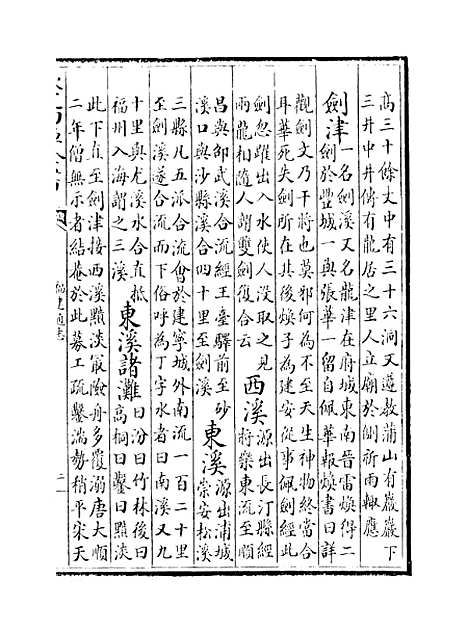 高三十餘丈中有三十六洞又遵教蒲山有巖巖下
三井中井傍有龍居之里人立廟於側祈雨輒應
劍津 一名劍溪又名龍津在府城東南晉雷煥得二
劍於豐城一與張華一留自佩華報煥書曰詳
觀劍文乃干將也莫邪何為不至天生神物終當合
耳華死失劍所在其後煥子為建安從事佩劍經此
劍忽躍出入水使人沒取之見
兩龍相隨人謂雙劍復合云
西溪 源出長汀縣經
將樂東流至順
昌與邵武溪合流經王臺驛前至沙
溪口與沙縣溪合四十里至劍溪
東溪 源出浦城
崇安松溪
三縣凡五派合流會於建寧城外南流一百二十里
至劍溪遂合流而下俗呼為丁字水者曰南溪又九
十里與尤溪水合直抵
福州入海謂之三溪
東溪諸灘 曰汾曰竹林後曰
高桐曰鑿曰黯淡
此下直至劍津接西溪黯淡最險舟多覆溺唐大順
二年僧無示者結菴於此募工疏鑿湍勢稍平宋天
福建通志
二